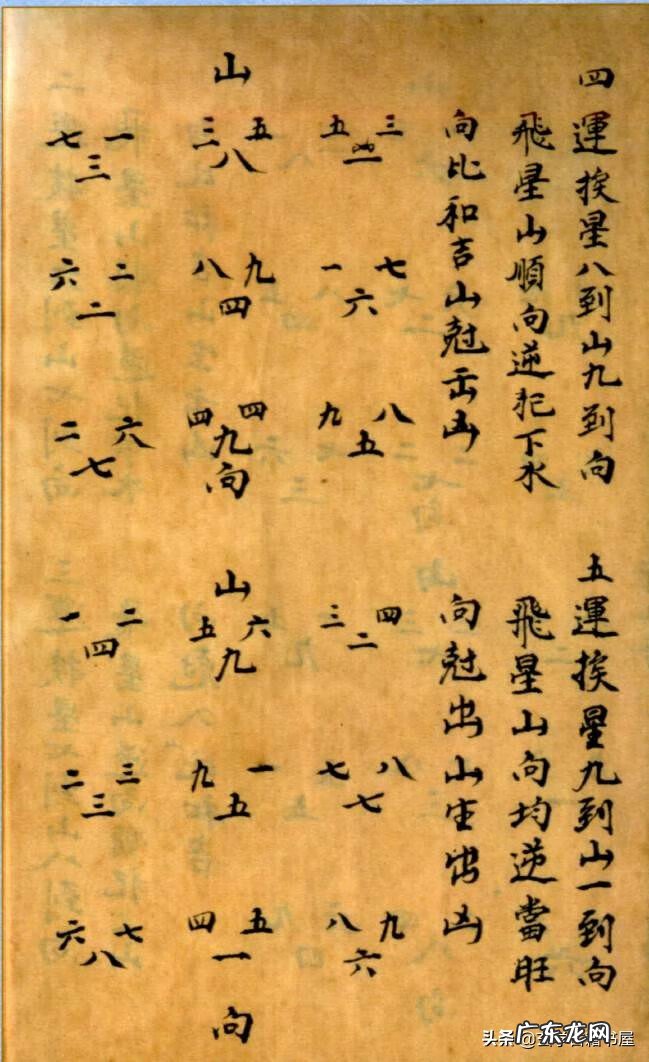 四運挨星八到山九到向
飛星山順向逆犯下水
向比和吉山尅出凶
山
七 一 三 五 五 三
三 八 一
六 二 八 九 一 七
二 四 六
二 六 四 四 九 八
七 九 五
向
五運挨星九到山一到向
飛星山向均逆當旺
向尅出山生出凶
山
一 二 五 六 三 四
四 九 二
二 三 九 一 七 八
三 五 七
六 七 四 五 八 九
八 一 六
向
头条 书屋
广东龙网